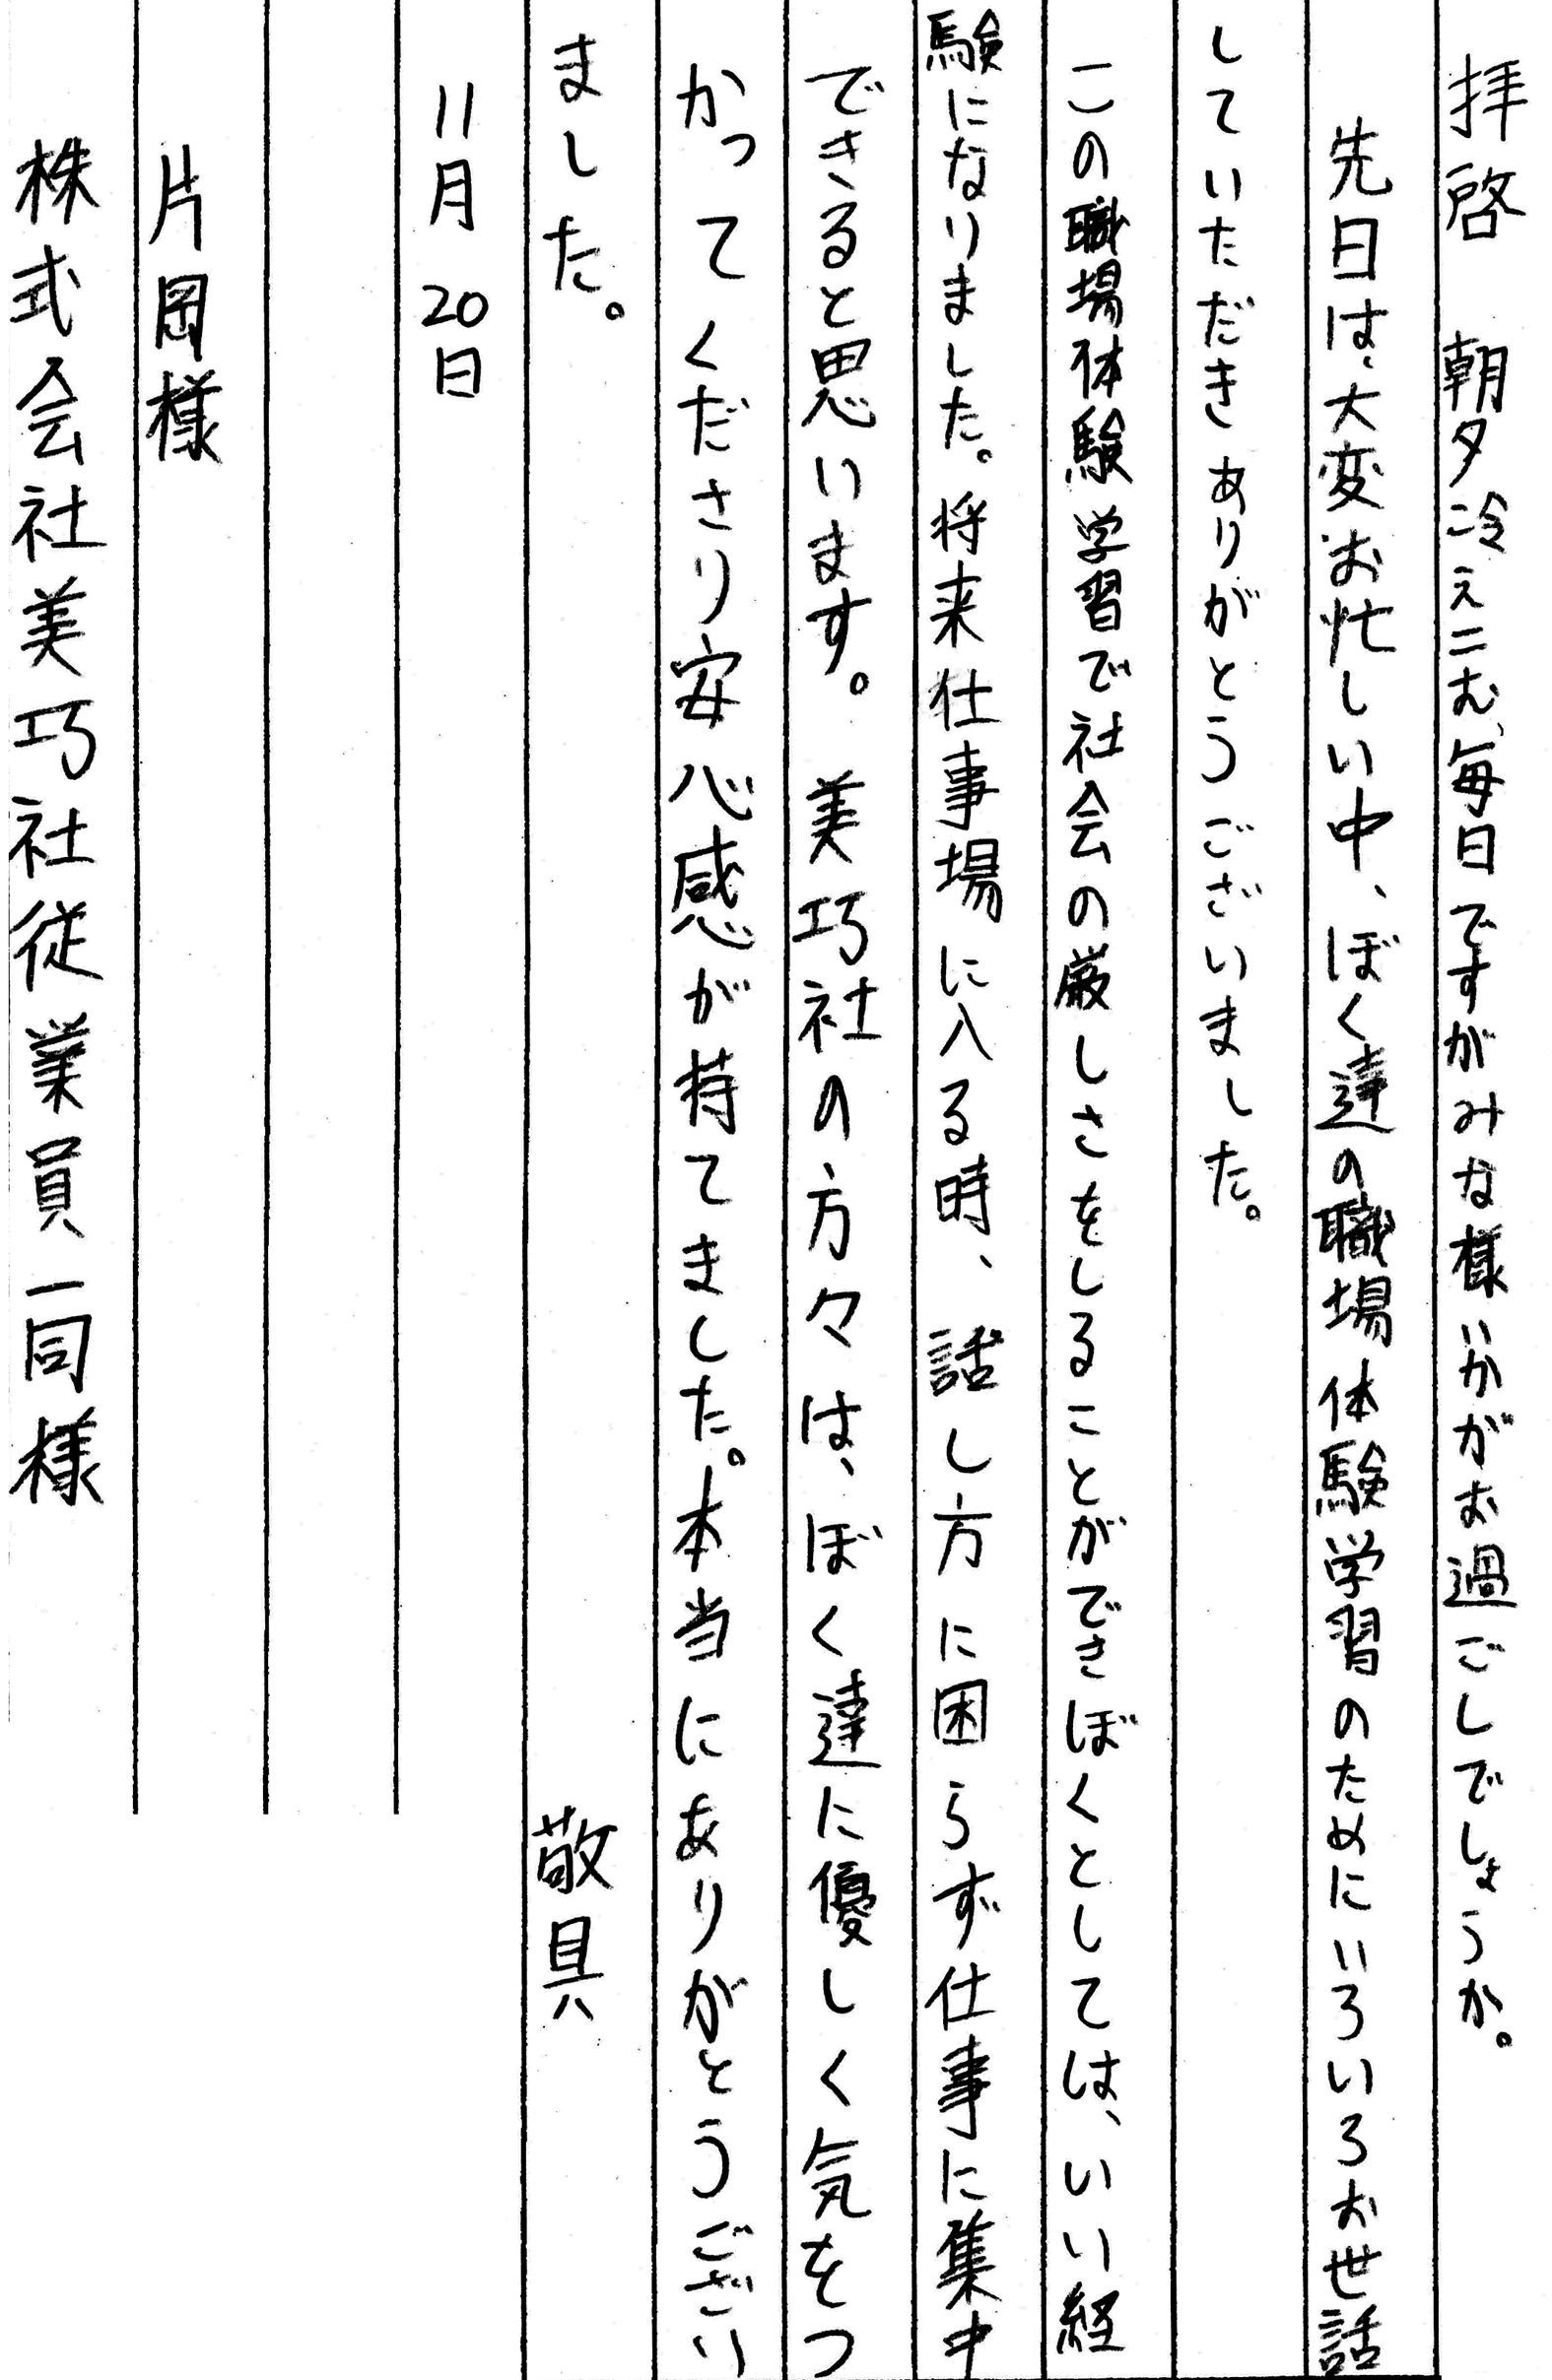 拝啓　朝夕冷えこむ、毎日ですがみな様いかがお過ごしでしょうか。
先日は、大変お忙しい中、ぼく達の職場体験学習のためにいろいろお世話
していただきありがとうございました。
この職場体験学習で社会の厳しさをしることができぼくとしては、いい経
験になりました。将来仕事場に入る時、話し方に困らず仕事に集中
できると思います。美巧社の方々は、ぼく達に優しく気をつ
かってくださり安心感が持てました。本当にありがとうござい
ました。　敬具
11月20日
片岡様
株式会社美巧社従業員一同様